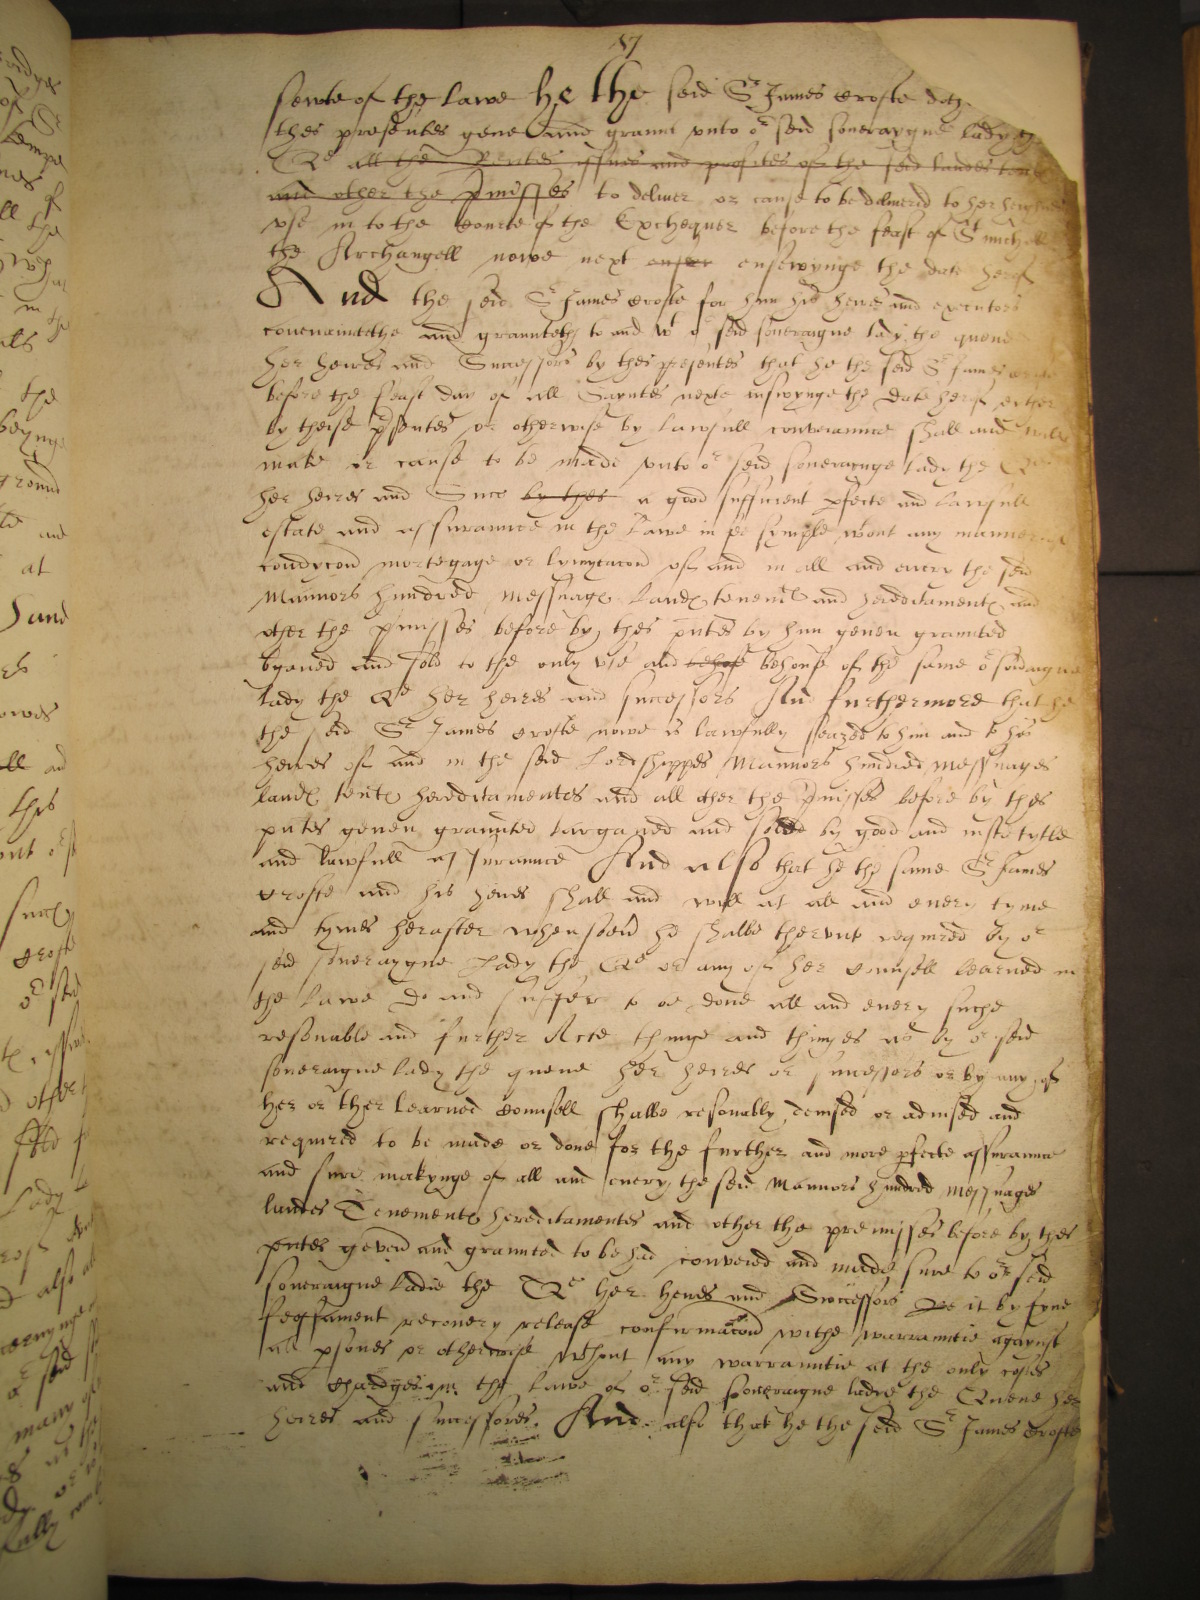 57
sewte of the Lawe he the seid Sr James Crofte doth
thes presentes geve and graunt unto or seid soveraygne lady the
Qe all the Rentes issues and profites of the seid landes tente
and other the pmisses to deliver or cause to be delivered to her heighnes
use in to the Courte of the Exchequer before the feast of St michell
the Archangell nowe next ensewynge the date herof
And the seid Sr James Crofte for him his heires and executors
covenauntethe and graunteth to and wt or seid soveraigne lady the quene
her heires and Successors by thes presentes that he the seid Sr James Crofte
before the feast day of all Sayntes nexte inswynge the date herof ether
by theise psentes or otherwise by lawfull conveiaunce shall and will
make or cause to be made unto or seid soveraynge lady the Qe
her heires and Succ by thes a good sufficient pfecte and lawfull
estate and assuraunce in the Lawe in fee symple wtout any manner of
condycon mortegage or lymytacon of and in all and every the seid
Mannors hundred messuages Landes tenemtes and hereditamentes and
other the pmisses before by thes pntes by him geven graunted
bganed and sold to the only use and behofe behoufe of the same or soveraigne
lady the Qe her heires and successors And furthermore that he
the seid Sr James Crofte nowe is lawfully seazed to him and to his
heires of and in the seid Lordshippes Mannors hundred messuages
landes tentes hereditamentes and all other the pmisses before by thes
pntes geven graunted bargayned and solde by good and iuste tytle
and lawfull assuraunce And also that he the same Sr James
Crofte and his heires shall and will at all and every tyme
and tymes herafter whensoever he shalbe therunto required by or
seid soveraygne Lady the Qe or any of her Counsell learned in
the Lawe do and suffer to be done all and every suche
resonable and further Acte thinge and thinges as by or seid
soveraigne lady the quene her heires or successors or by any of
her or ther learned Counsell shalbe resonably devised or advised and
required to be made or done for the further and more pfecte assuraunce
and sure makynge of all and every the seid Mannors hundred messuages
landes Tenementes hereditamentes and other the premisses before by thes
pntes geven and graunted to be had conveied and made sure to or seid
soveraigne ladie the Qe her heires and Successors Be it by fyne
feoffament recovery release confirmacon withe warrauntie agaynst
all psones or otherwise wthout any warrauntie at the only costes
and chardges in the lawe of or seid soveraigne ladie the Quene her
heires and successores. And also that he the seid Sr James Crofte